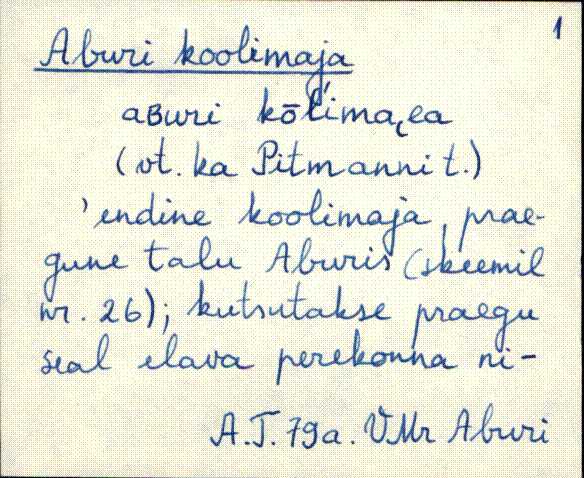 1
Aburi koolimaja
aʙuri kōl'imai̯ea
(vt. ka Pitmanni t.)
'endine koolimaja, prae-
gune talu Aburis (skeemil
nr. 26); kutsutakse praegu
seal elava perekonna ni-
A.T. 79a. VMr Aburi